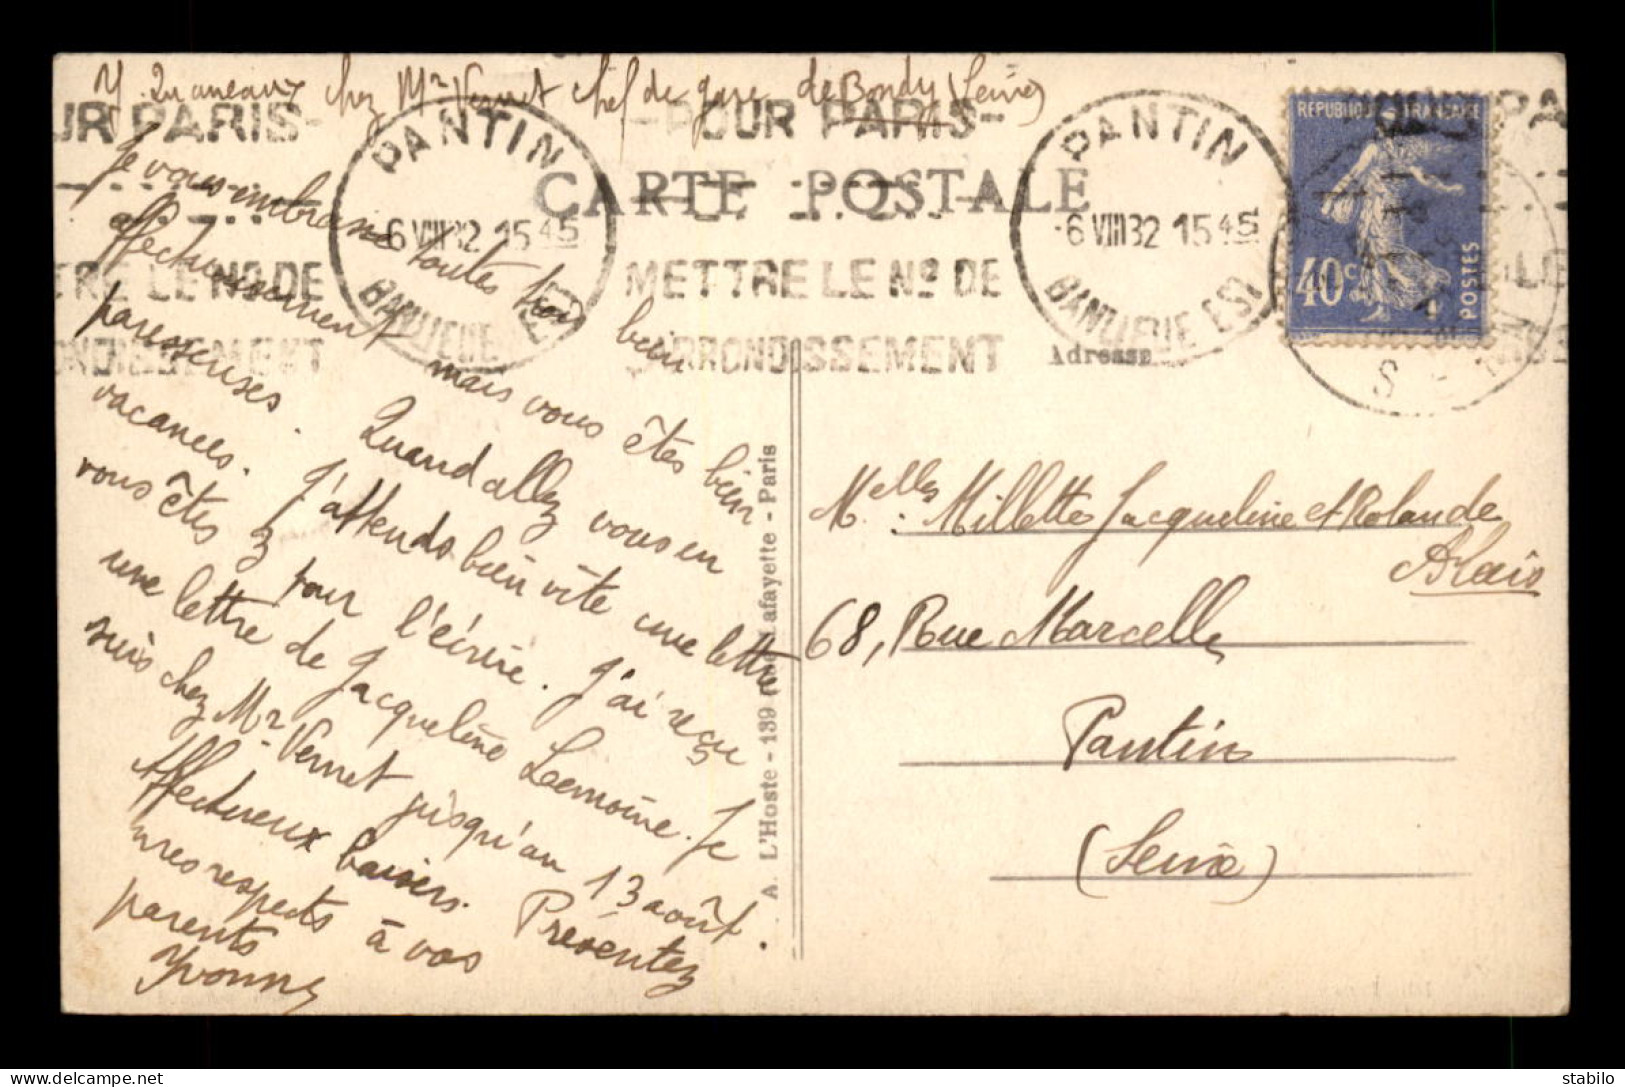 Y. Quaneaux chez Mr Vernet chef de gare de Bondy (Seine)
UR PARIS-
-POUR PARIS-
PANTIN
6 VIII 32 15 45
BANLIEUE EST
PANTIN
6 VIII 32 15 45
BANLIEUE EST
CARTE POSTALE
TRE LE No DE
METTRE LE No DE
ONDISSEMENT
ARRONDISSEMENT
REPUBLIQUE FRANÇAISE
40 c
POSTES
Adresse
Je vous embrasse toutes trois bien
affectueusement mais vous êtes bien
paresseuses. Quand allez vous en
vacances. J'attends bien vite une lettre
vous êtes 3 pour l'écrire. J'ai reçu
une lettre de Jacqueline Lemoine. Je
suis chez Mr Vernet jusqu'au 13 août.
Affectueux baisers. Présentez
mes respects à vos
parents
Yvonne
A. L'Hoste - 139 rue Lafayette - Paris
Melles Millette Jacqueline et Rolande
Blais
68, Rue Marcelle
Pantin
(Seine)
stabilo